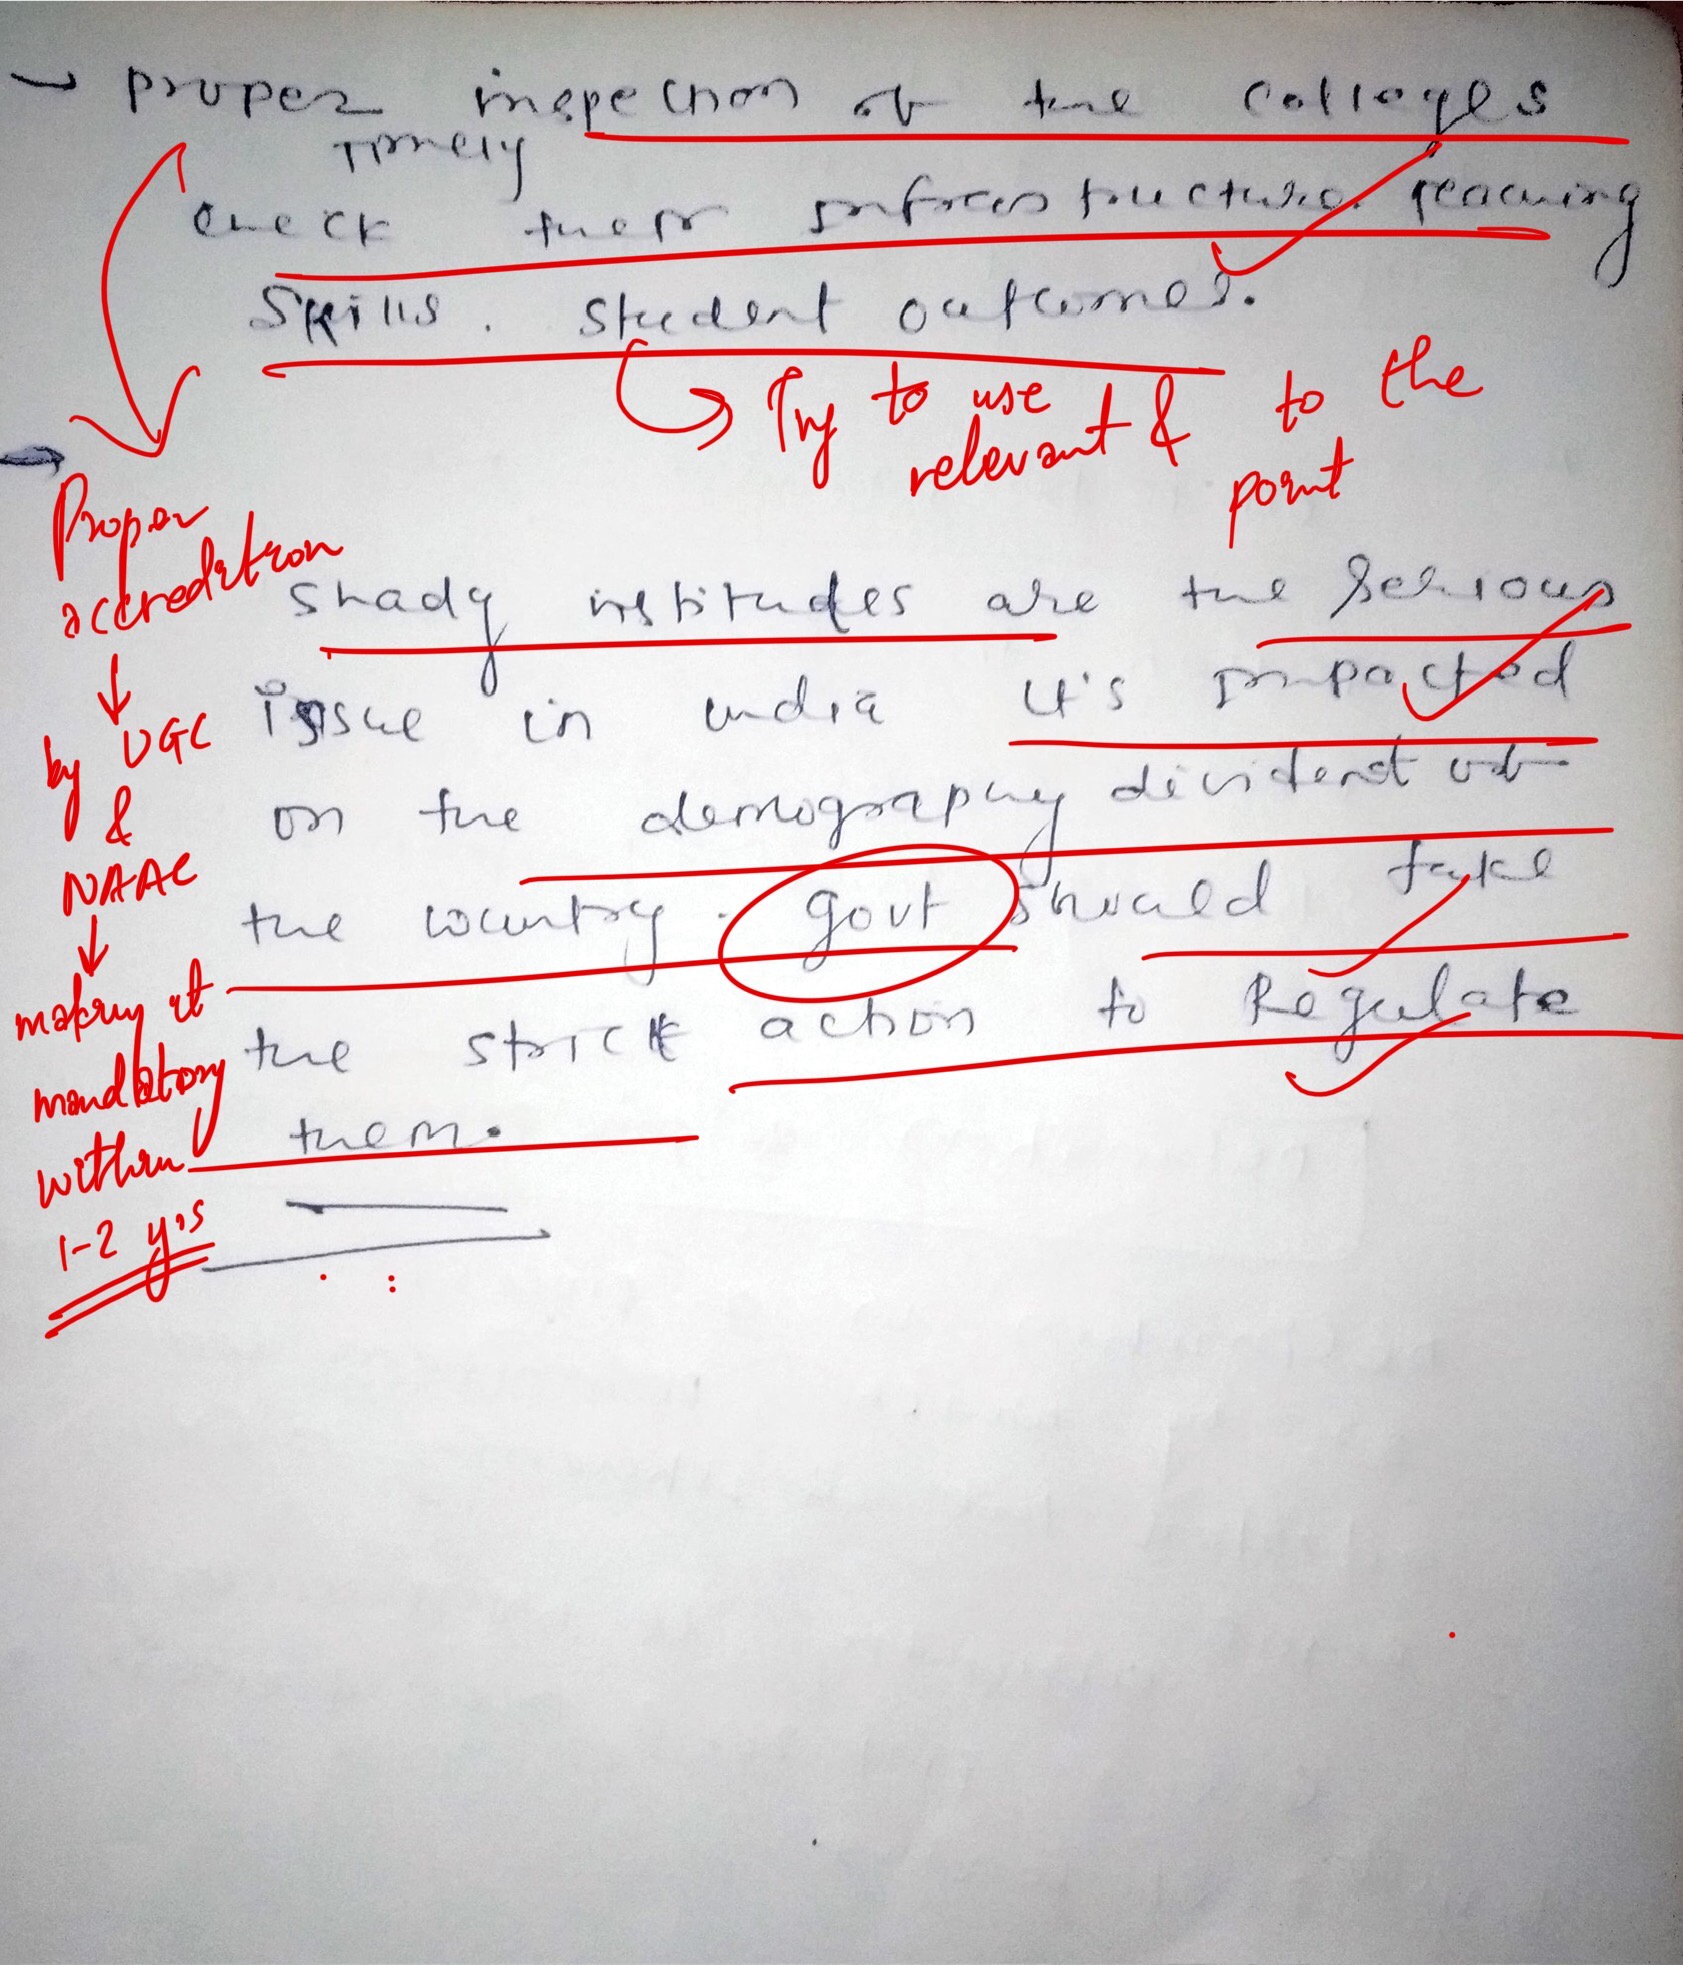 → proper inspection of the colleges
Timely
check their infrastructure. teaching
Skills. Student outcomes.
→ Try to use
relevant & to the
point
→
Proper
accredition
↓
by UGC
&
NAAC
↓
making it
mandatory
within
1-2 yrs
shady institudes are the serious
issue in india it's impacted
on the demography divident of
the country. govt should take
the strick action to Regulate
them.